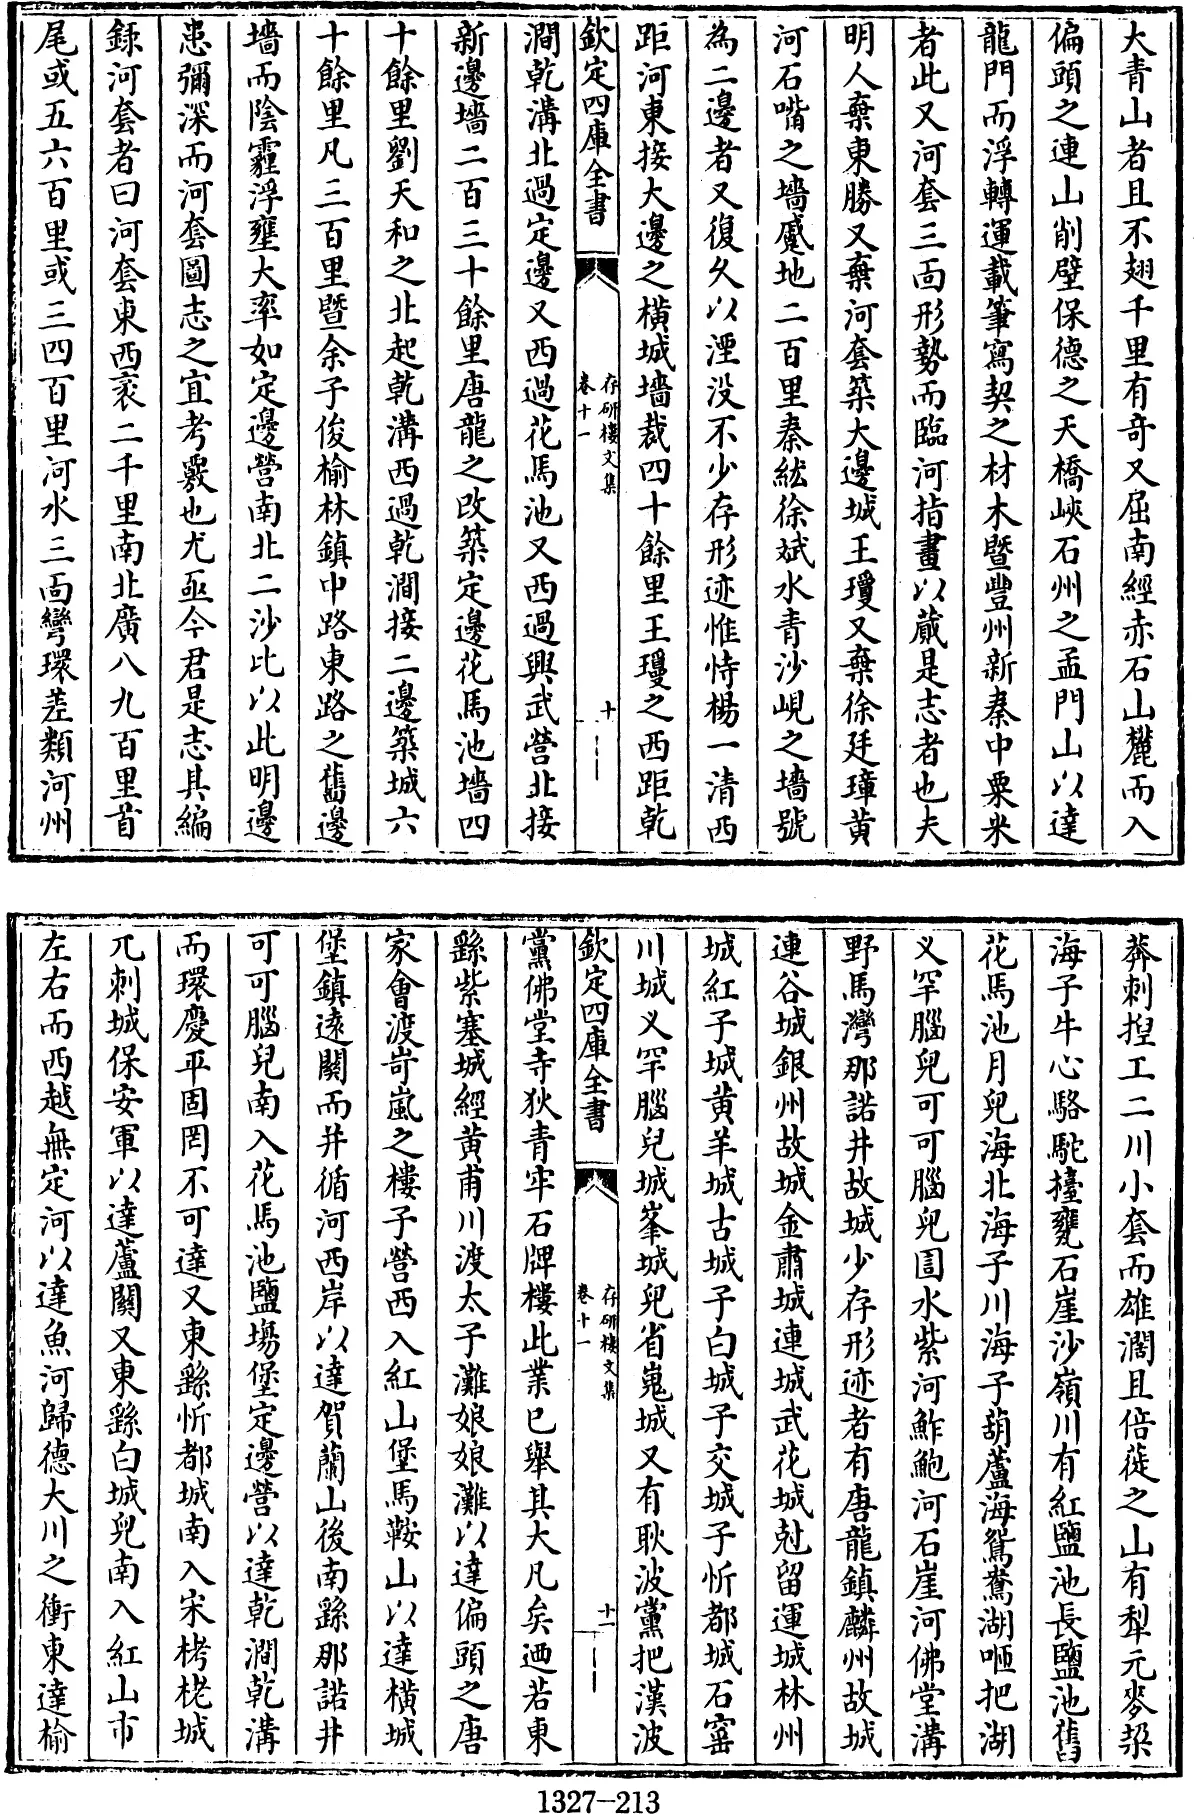 大青山者且不翅千里有奇又屈南經赤石山麓而入
偏頭之連山削壁保德之天橋峽石州之孟門山以達
龍門而浮轉運載筆寫契之材木暨豐州新秦中粟米
者此又河套三面形勢而臨河指畫以蕆是志者也夫
明人棄東勝又棄河套築大邊城王瓊又棄徐廷璋黄
河石嘴之墻蹙地二百里秦紘徐斌水青沙峴之墻號
為二邊者又復久以湮没不少存形迹惟恃楊一清西
距河東接大邊之横城墻裁四十餘里王瓊之西距乾
欽定四庫全書
存研樓文集
卷十一
十
澗乾溝北過定邊又西過花馬池又西過興武營北接
新邊墻二百三十餘里唐龍之改築定邊花馬池墻四
十餘里劉天和之北起乾溝西過乾澗接二邊築城六
十餘里凡三百里暨余子俊榆林鎮中路東路之舊邊
墻而陰霾浮壅大率如定邊營南北二沙比以此明邊
患彌深而河套圖志之宜考覈也尤亟今君是志其編
録河套者曰河套東西袤二千里南北廣八九百里首
尾或五六百里或三四百里河水三面彎環差類河州
莽剌揑工二川小套而雄濶且倍蓰之山有犁元麥垛
海子牛心駱駝擡甕石崖沙嶺川有紅鹽池長鹽池舊
花馬池月兒海北海子川海子葫蘆海鴛鴦湖咂把湖
义罕腦兒可可腦兒圁水紫河鮓鮑河石崖河佛堂溝
野馬灣那諾井故城少存形迹者有唐龍鎮麟州故城
連谷城銀州故城金肅城連城武花城尅留運城林州
城紅子城黄羊城古城子白城子交城子忻都城石窰
川城义罕腦兒城峯城兒省嵬城又有耿波黨把漢波
欽定四庫全書
存研樓文集
卷十一
十一
黨佛堂寺狄青牢石牌樓此業已舉其大凡矣迺若東
繇紫塞城經黄甫川渡太子灘娘娘灘以達偏頭之唐
家會渡岢嵐之樓子營西入紅山堡馬鞍山以達横城
堡鎮逺關而并循河西岸以達賀蘭山後南繇那諾井
可可腦兒南入花馬池鹽塲堡定邊營以達乾澗乾溝
而環慶平固罔不可達又東繇忻都城南入宋栲栳城
兀剌城保安軍以達蘆關又東繇白城兒南入紅山市
左右而西越無定河以達魚河歸德大川之衝東達榆
1327—213